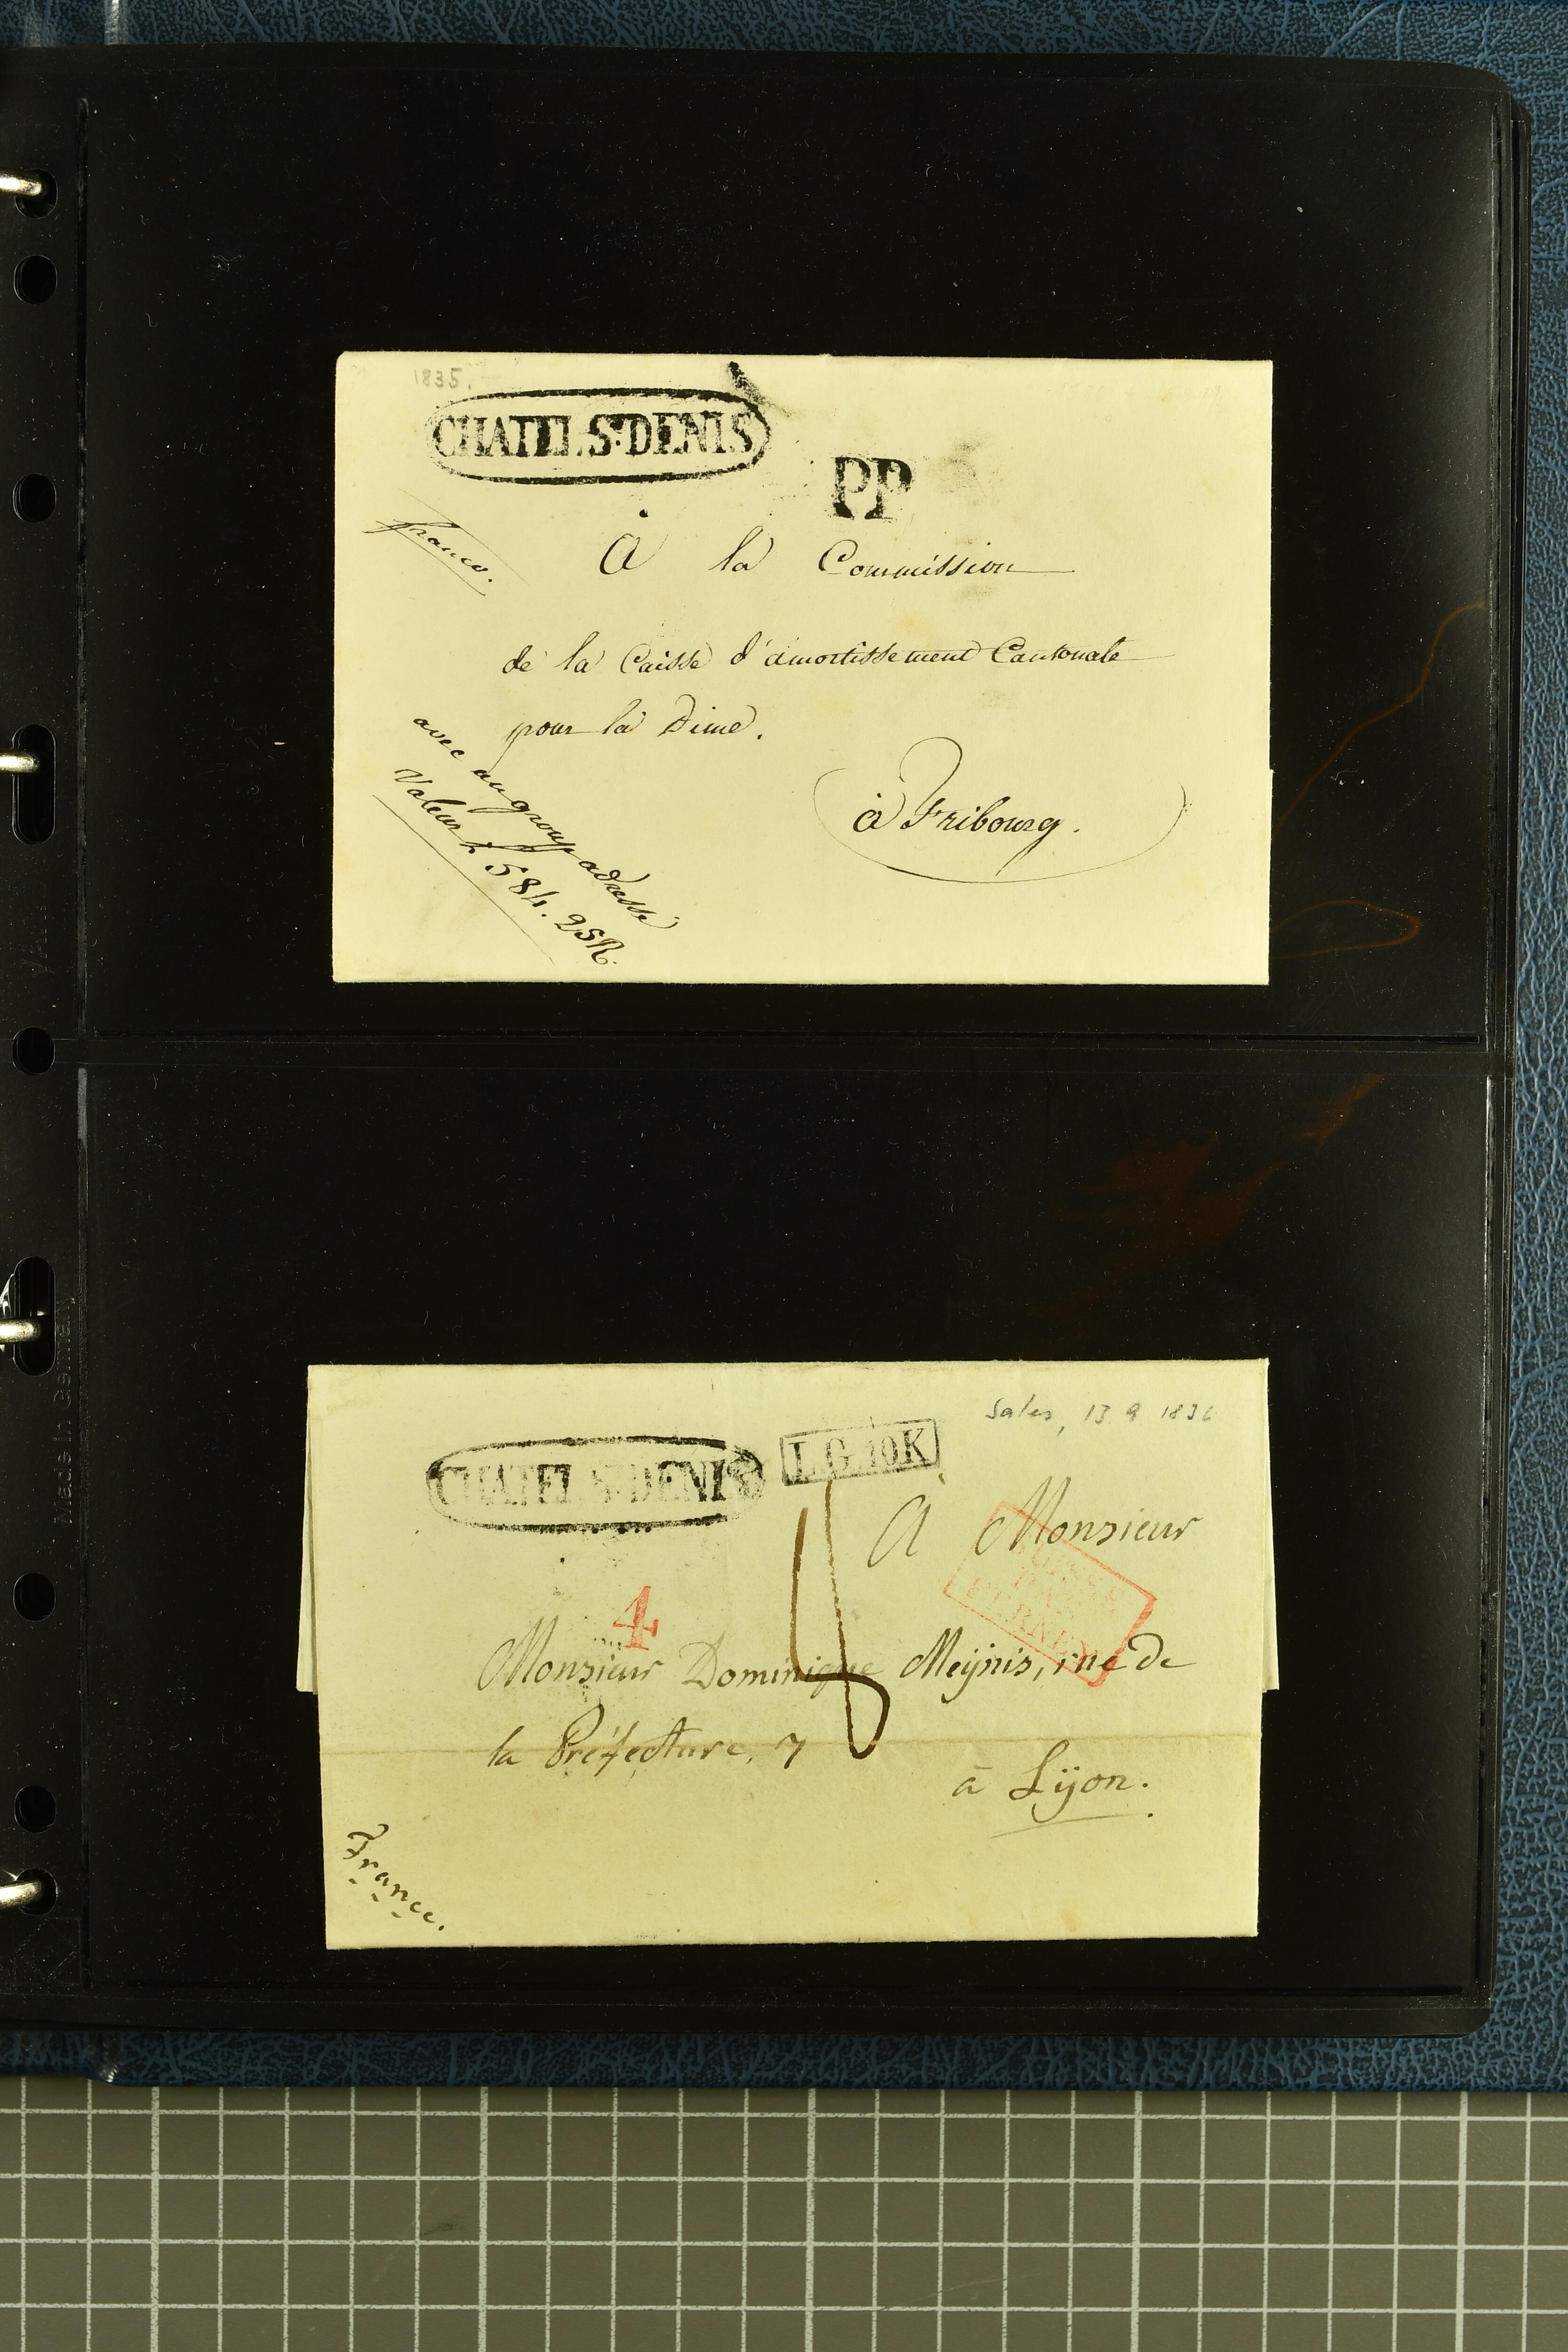 1835.
CHATEL S.T DENIS
PP
franco.
à la Commission
de la Caisse d'amortissement Cantonale
pour la Dime.
à Fribourg.
avec un group adressé
Valeur £ 584. 25R.
Sales, 13 9 1836
CHATEL S.T DENIS
L.G.10K
À Monsieur
SUISSE
PAR
FERNEY
4
Monsieur Dominique Meÿnis, rue de
la Préfecture, 7
à Lÿon.
France.
Made in Germany